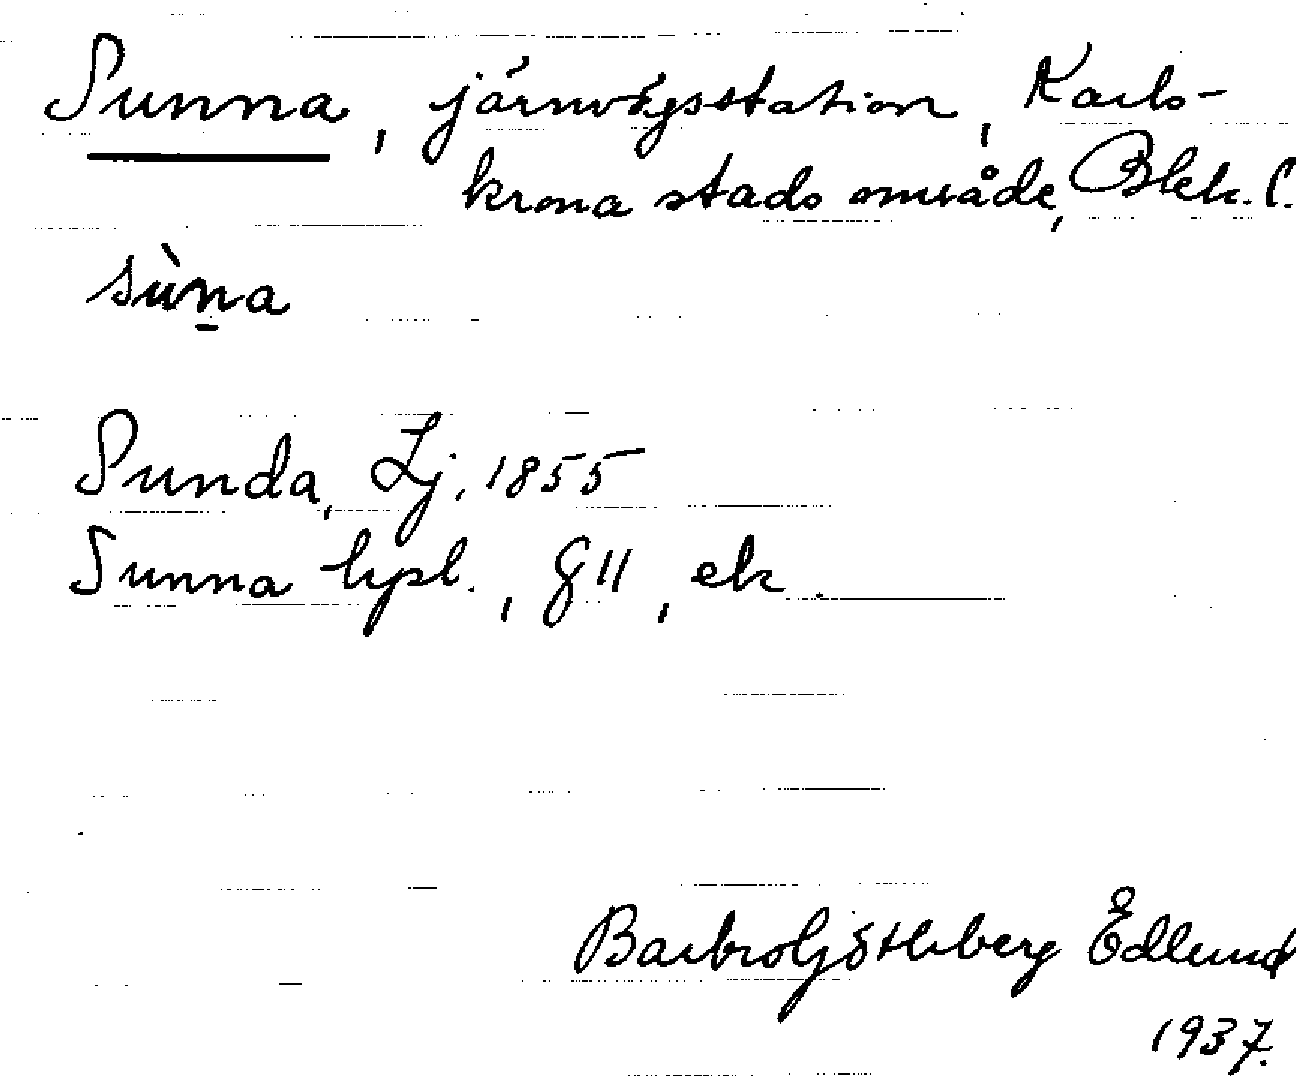 Sunna, järnvägsstation, Karls-
krona stads område, Blek. l.
sùn̲a
Sunda, Lj, 1855
Sunna hpl., G 11, ek.
Barbro Götlberg Ödlund
1937.